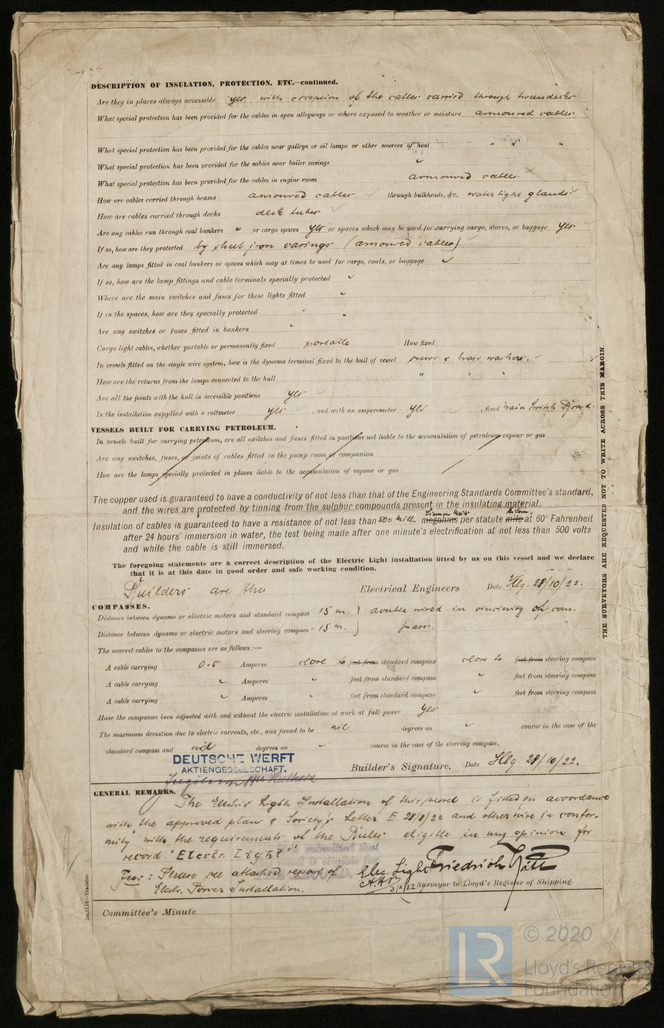 DESCRIPTION OF INSULATION, PROTECTION, ETC.—continued.
Are they in places always accessible yes with exception of the cables carried through
What special protection has been provided for the cables in open alleyways or where exposed to weather or moisture armoured cables
What special protection has been provided for the cables near galleys or oil lamps or other sources of heat " " "
What special protection has been provided for the cables near boiler casings "
What special protection has been provided for the cables in engine room armoured cables
How are cables carried through beams armoured cables through bulkheads, &c. water tight glands
How are cables carried through decks deck tubes
Are any cables run through coal bunkers " or cargo spaces yes or spaces which may be used for carrying cargo, stores, or baggage yes
If so, how are they protected by sheet iron casings (armoured cables)
Are any lamps fitted in coal bunkers or spaces which may at times be used for cargo, coals, or baggage "
If so, how are the lamp fittings and cable terminals specially protected "
Where are the main switches and fuses for these lights fitted "
If in the spaces, how are they specially protected "
Are any switches or fuses fitted in bunkers "
Cargo light cables, whether portable or permanently fixed portable How fixed
In vessels fitted on the single wire system, how is the dynamo terminal fixed to the hull of vessel screws & brass washers.
How are the returns from the lamps connected to the hull " " "
Are all the joints with the hull in accessible positions yes
Is the installation supplied with a voltmeter yes , and with an amperemeter yes , fixed main switch board
VESSELS BUILT FOR CARRYING PETROLEUM.
In vessels built for carrying petroleum, are all switches and fuses fitted in positions not liable to the accumulation of petroleum vapour or gas
Are any switches, fuses, or joints of cables fitted in the pump room or companion
How are the lamps specially protected in places liable to the accumulation of vapour or gas
The copper used is guaranteed to have a conductivity of not less than that of the Engineering Standards Committee's standard,
and the wires are protected by tinning from the sulphur compounds present in the insulating material.
Insulation of cables is guaranteed to have a resistance of not less than 500 mill. megohms per statute mile at 60° Fahrenheit
after 24 hours' immersion in water, the test being made after one minute's electrification at not less than 500 volts
and while the cable is still immersed.
The foregoing statements are a correct description of the Electric Light installation fitted by us on this vessel and we declare
that it is at this date in good order and safe working condition.
Builders are the Electrical Engineers Date Hbg. 28/10/22.
COMPASSES.
Distance between dynamo or electric motors and standard compass 15 m. } double wired in vincinity of com-
Distance between dynamo or electric motors and steering compass 15 m. } passes.
The nearest cables to the compasses are as follows:—
A cable carrying 0.5 Amperes close to feet from standard compass close to feet from steering compass
A cable carrying " Amperes " feet from standard compass " feet from steering compass
A cable carrying " Amperes " feet from standard compass " feet from steering compass
Have the compasses been adjusted with and without the electric installation at work at full power yes
The maximum deviation due to electric currents, etc., was found to be nil degrees on " course in the case of the
standard compass and nil degrees on " course in the case of the steering compass.
DEUTSCHE WERFT
AKTIENGESELLSCHAFT.
Builder's Signature. Date Hbg 28/10/22.
GENERAL REMARKS.
The Electric Light Installation of this vessel is fitted in accordance
with the approved plan & Society's Letter E. 28/8/22 and otherwise in confor-
mity with the requirements of the Rules eligible in my opinion for
record "Electr. Light"
Please see attached report of
Electr. Power Installation.
Elec. Light
Friedrich
Surveyor to Lloyd's Register of Shipping.
Committee's Minute
THE SURVEYORS ARE REQUESTED NOT TO WRITE ACROSS THIS MARGIN
LR
© 2020
Lloyd's Register
Foundation